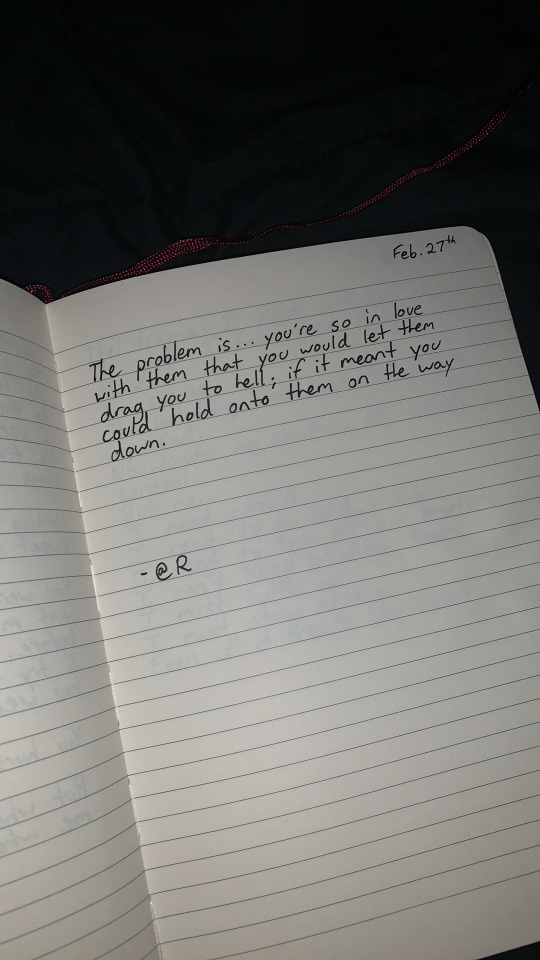 Feb. 27th
The problem is... you're so in love
with them that you would let them
drag you to hell; if it meant you
could hold onto them on the way
down.
- @R